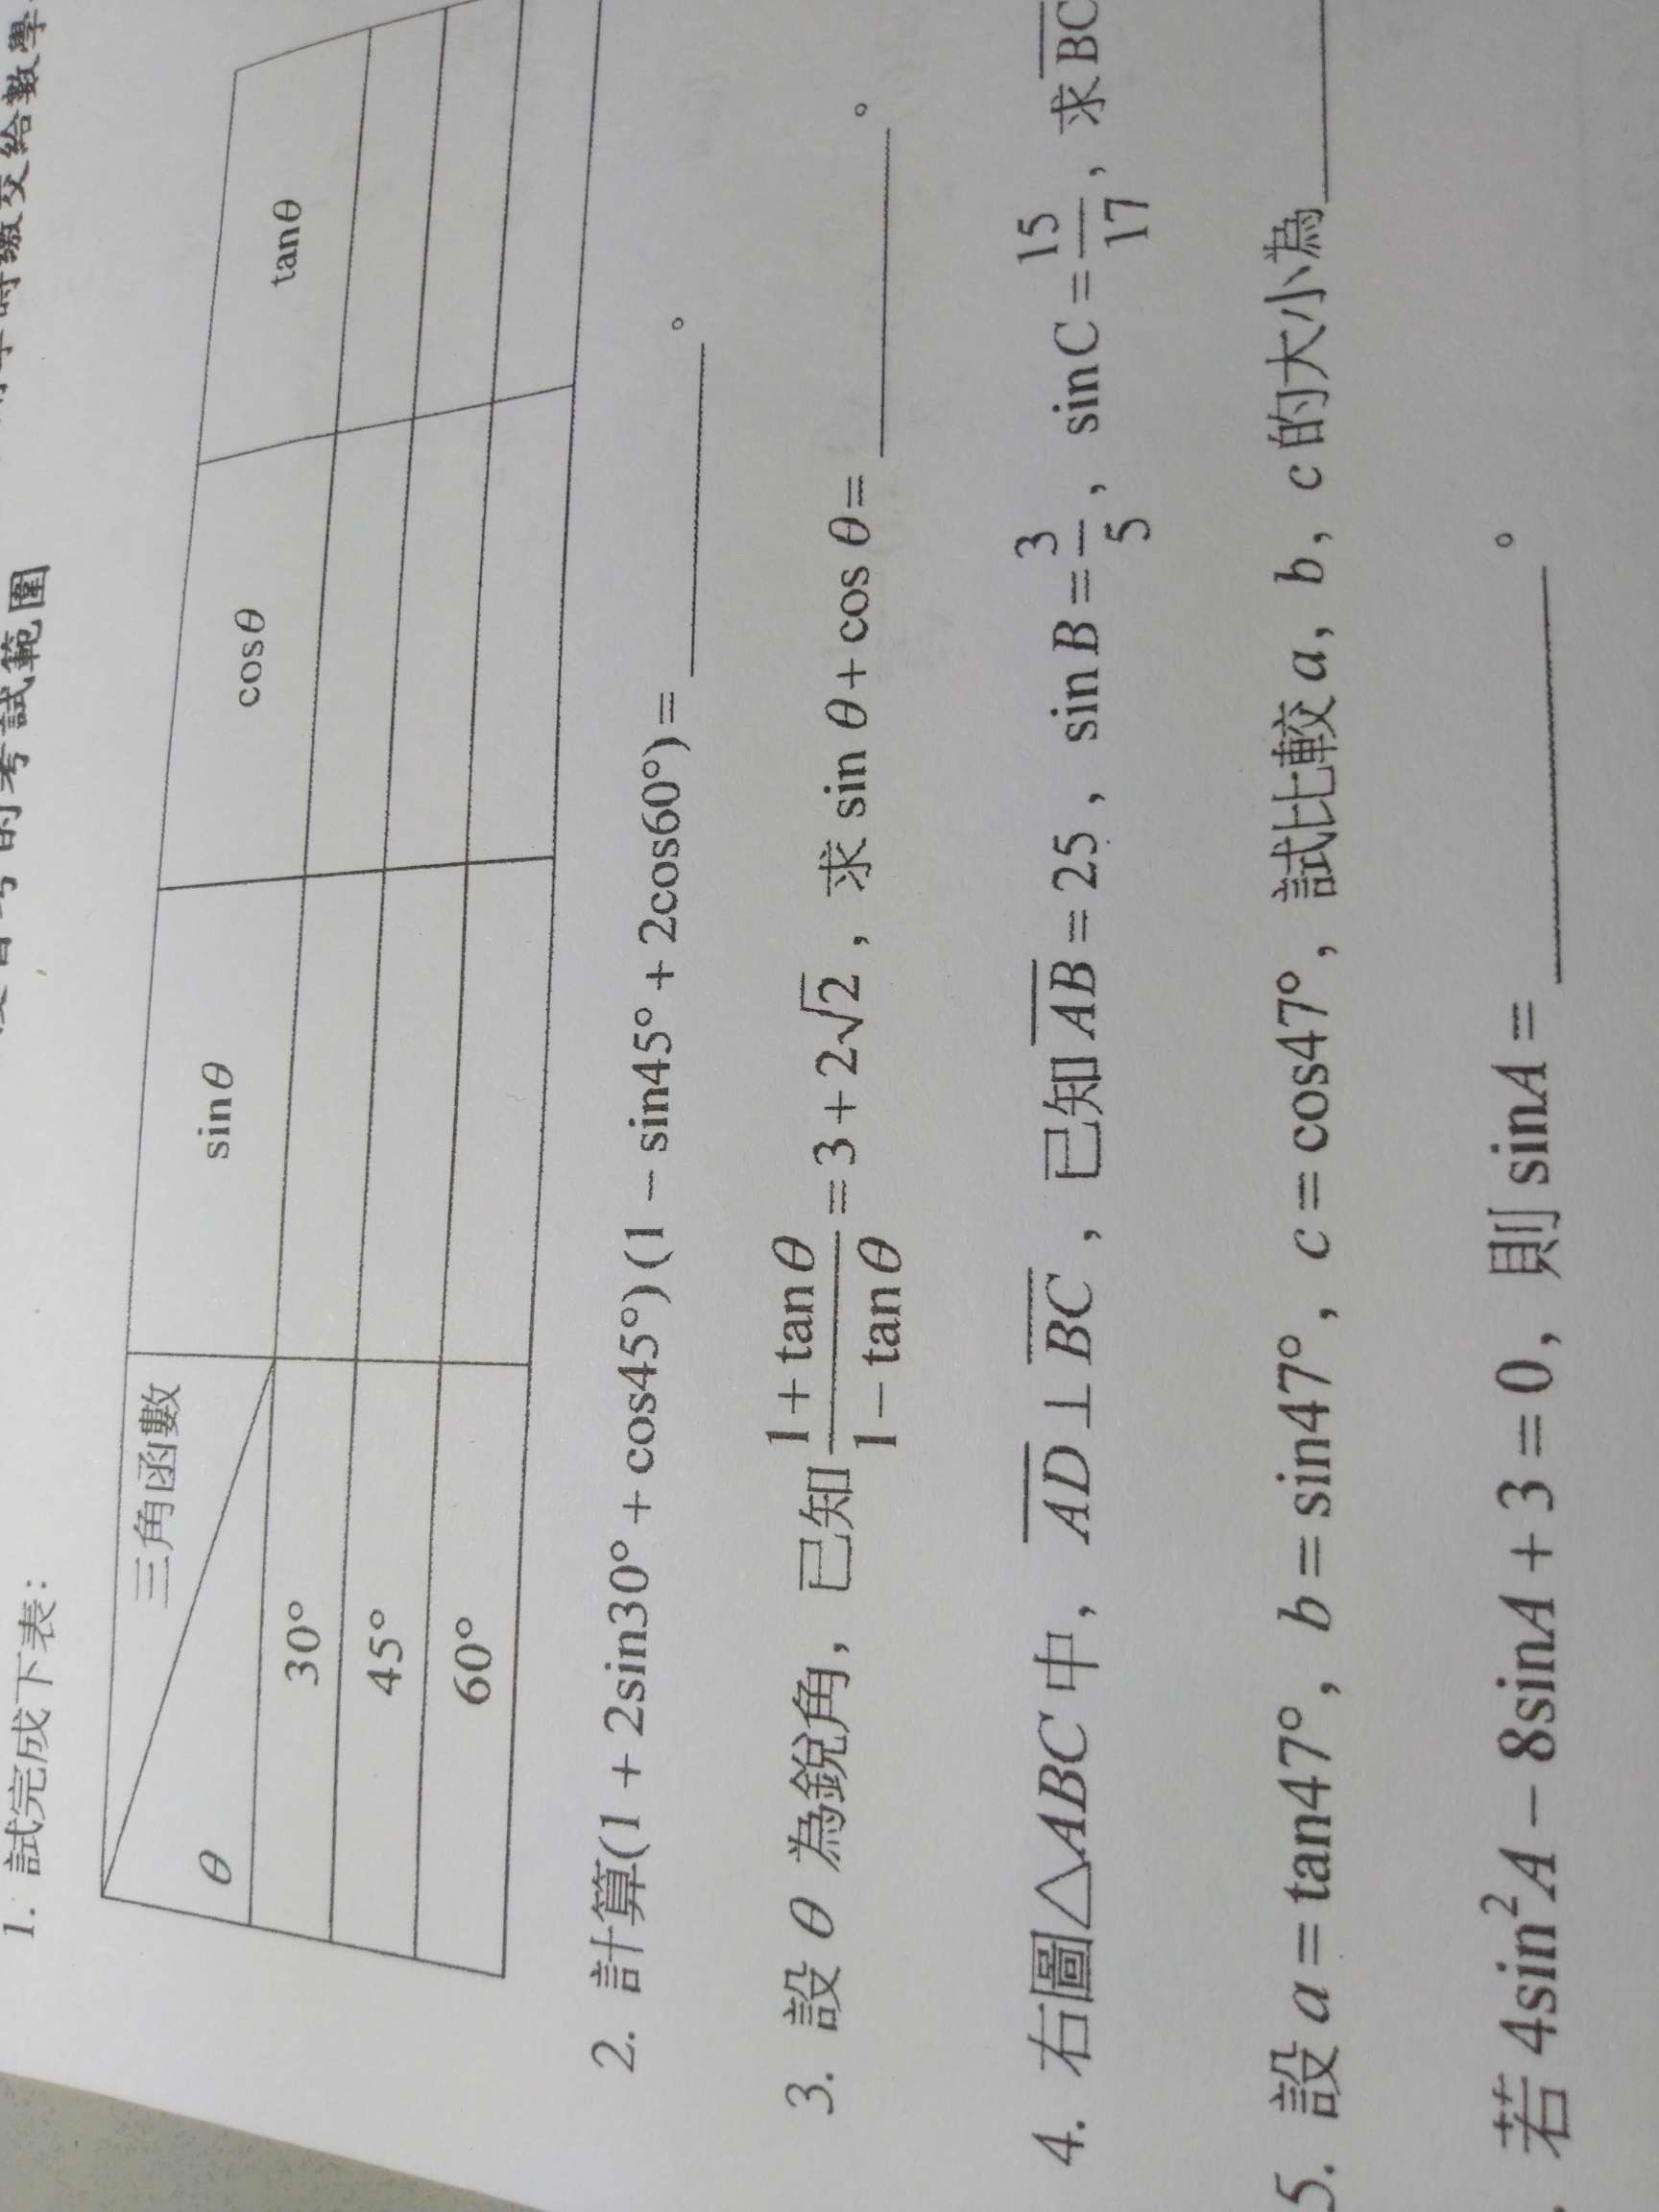 的考試範圍
繳交給數學
1. 試完成下表：
三角函數
θ
sinθ
cosθ
tanθ
30°
45°
60°
2. 計算(1 + 2sin30° + cos45°)(1 − sin45° + 2cos60°) = ________。
3. 設 θ 為銳角，已知 (1 + tanθ)/(1 − tanθ) = 3 + 2√2，求 sin θ + cos θ = ________。
4. 右圖△ABC 中，AD ⊥ BC，已知 AB = 25，sin B = 3/5，sin C = 15/17，求 BC
5. 設 a = tan47°，b = sin47°，c = cos47°，試比較 a，b，c 的大小為________
若 4sin²A − 8sinA + 3 = 0，則 sinA = ________。